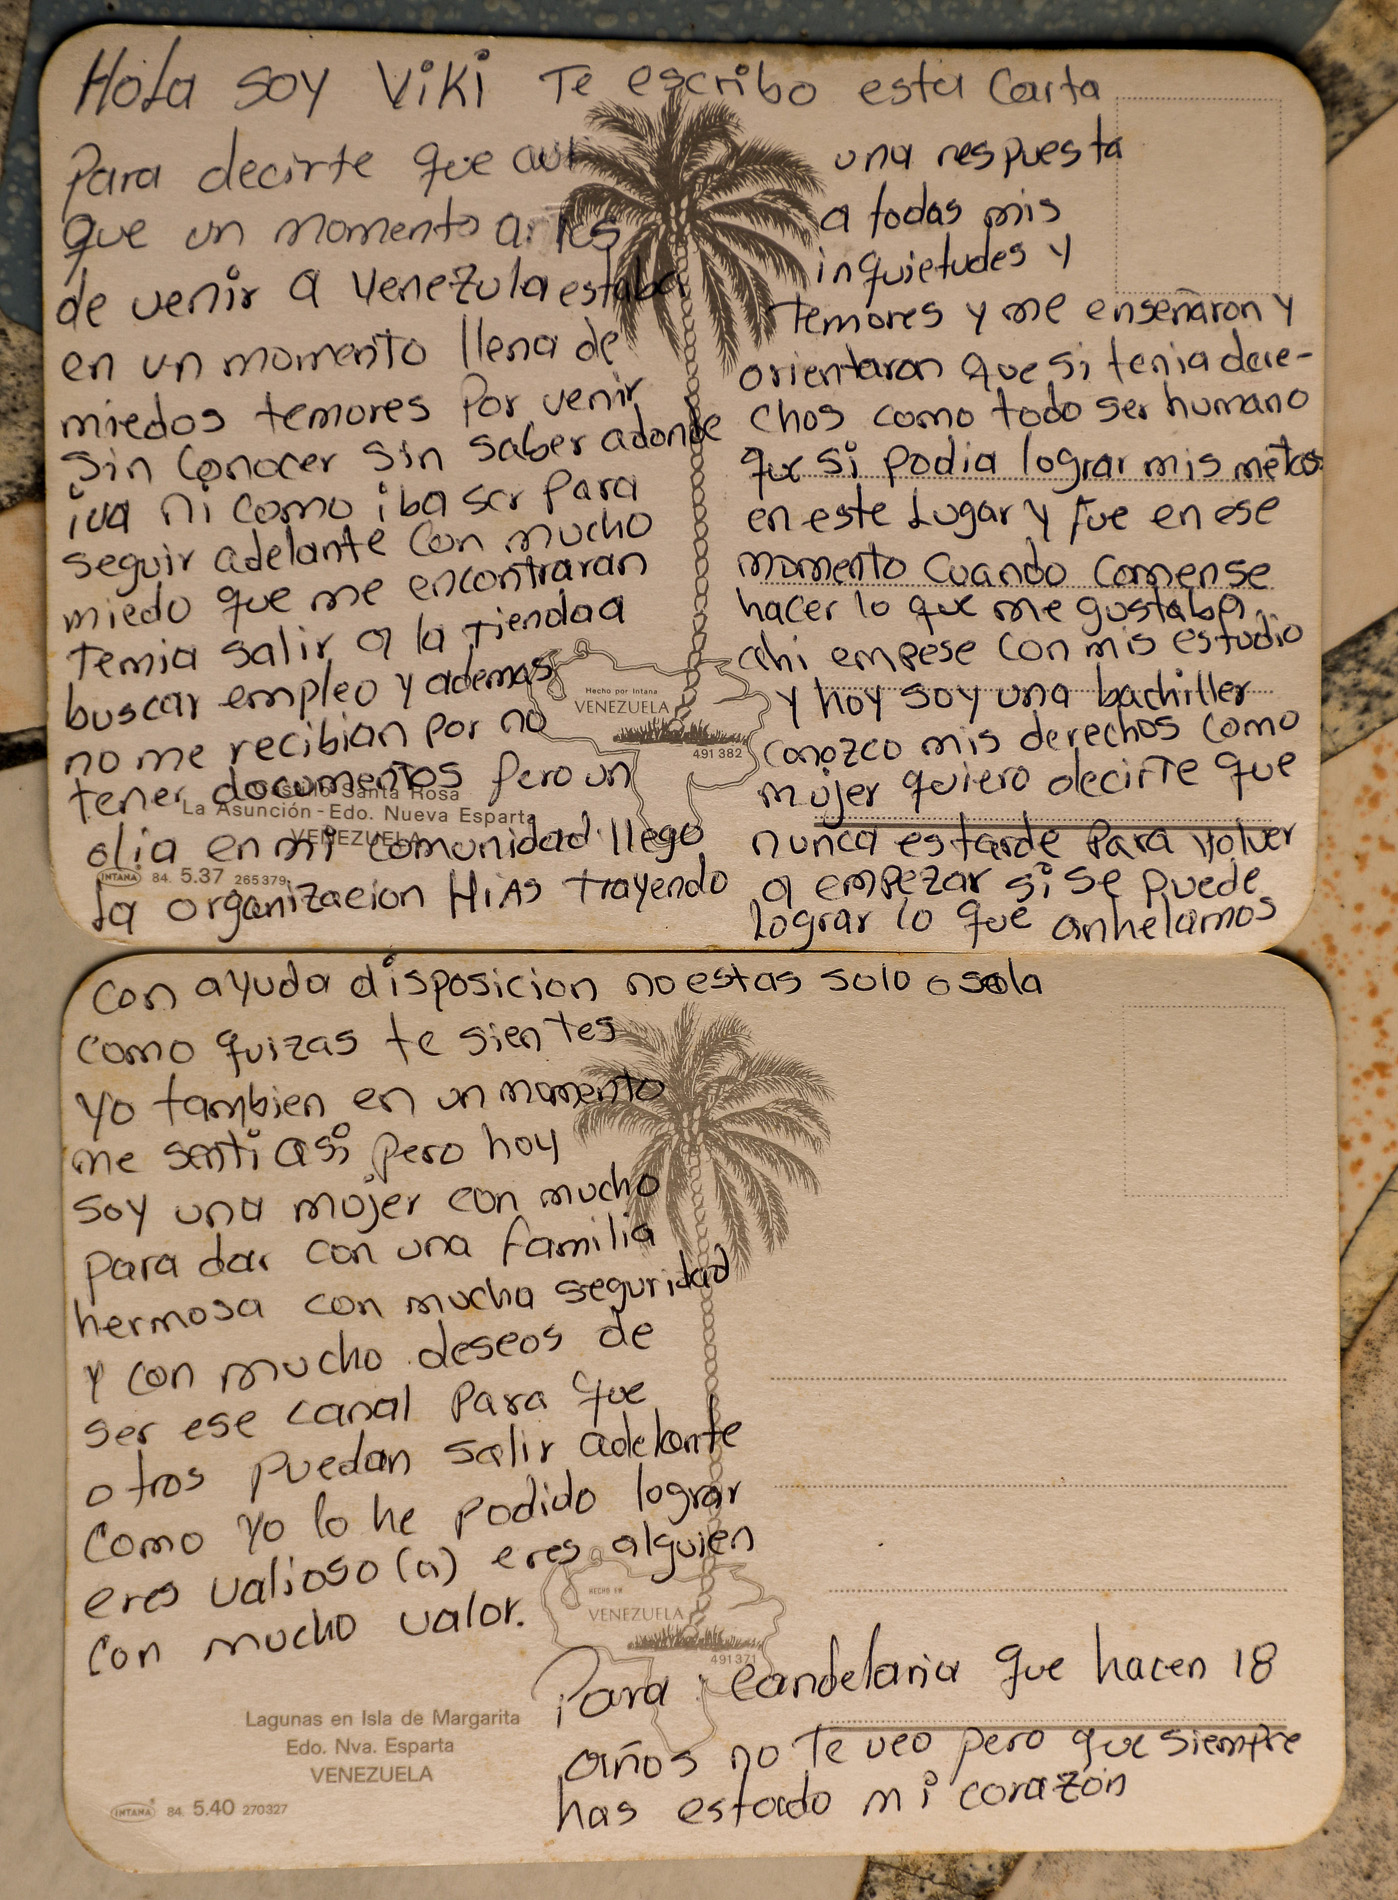 Hola soy Viki Te escribo esta Carta
Para decirte que
que un momento antes
de venir a Venezula estaba
en un momento llena de
miedos temores Por venir
Sin Conocer sin saber adonde
iva ni como iba ser Para
seguir adelante Con mucho
miedo que me encontraran
Temia salir a la Tiendaa
buscar empleo y ademas
no me recibian por no
tener documentos Pero un
dia en mi comunidad llego
La organizacion HiAs trayendo
una respuesta
a todas mis
inquietudes y
Temores y me enseñaron y
orientaron que si tenia dere-
chos como todo ser humano
que si podia lograr mis metas
en este Lugar y Fue en ese
momento Cuando Comense
hacer lo que me gustaba
ahi empese con mis estudio
y hoy soy una bachiller
conozco mis derechos como
mujer quiero decirte que
nunca estarde Para volver
a empezar si se puede
Lograr lo que anhelamos
Hecho por Intana
VENEZUELA
491 382
Santa Rosa
La Asunción - Edo. Nueva Esparta
VENEZUELA
INTANA 84. 5.37 265379
Con ayuda disposicion no estas solo o sola
como quizas te sientes
yo tambien en un momento
me senti asi pero hoy
soy una mujer con mucho
para dar con una familia
hermosa con mucha seguridad
y con mucho deseos de
ser ese canal Para que
otros puedan salir adelante
Como yo lo he podido lograr
eres valioso (a) eres alguien
Con mucho valor.
HECHO EN
VENEZUELA
491371
Para Candelaria que hacen 18
años no Te veo pero que siempre
has estado mi corazón
Lagunas en Isla de Margarita
Edo. Nva. Esparta
VENEZUELA
INTANA 84. 5.40 270327